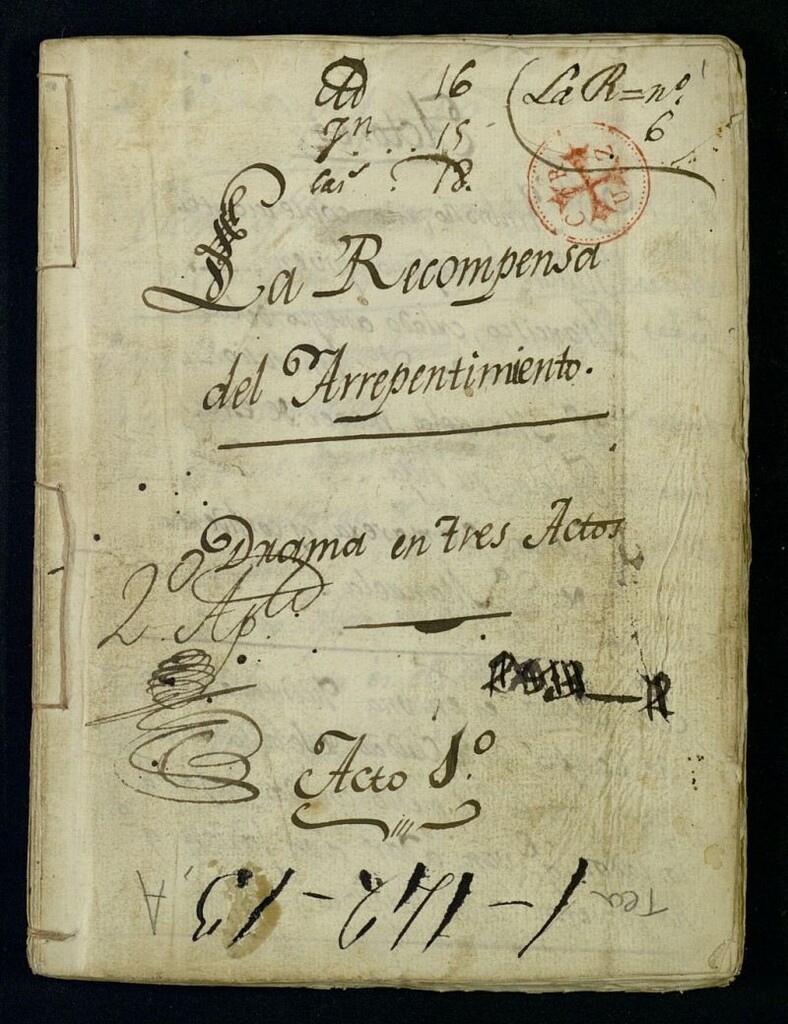 Ad 16 (La R=nº.
Jn . . 15 6
Cas . 18.
C R U Z
La Recompensa
del Arrepentimiento.
Drama en tres Actos
2º Apto
Acto 1º.
1-142-13, A
Tea